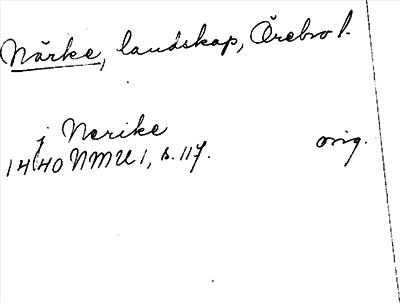 Närke, landskap, Örebro l.
j Nerike
1440 NMU 1, s. 117. orig.